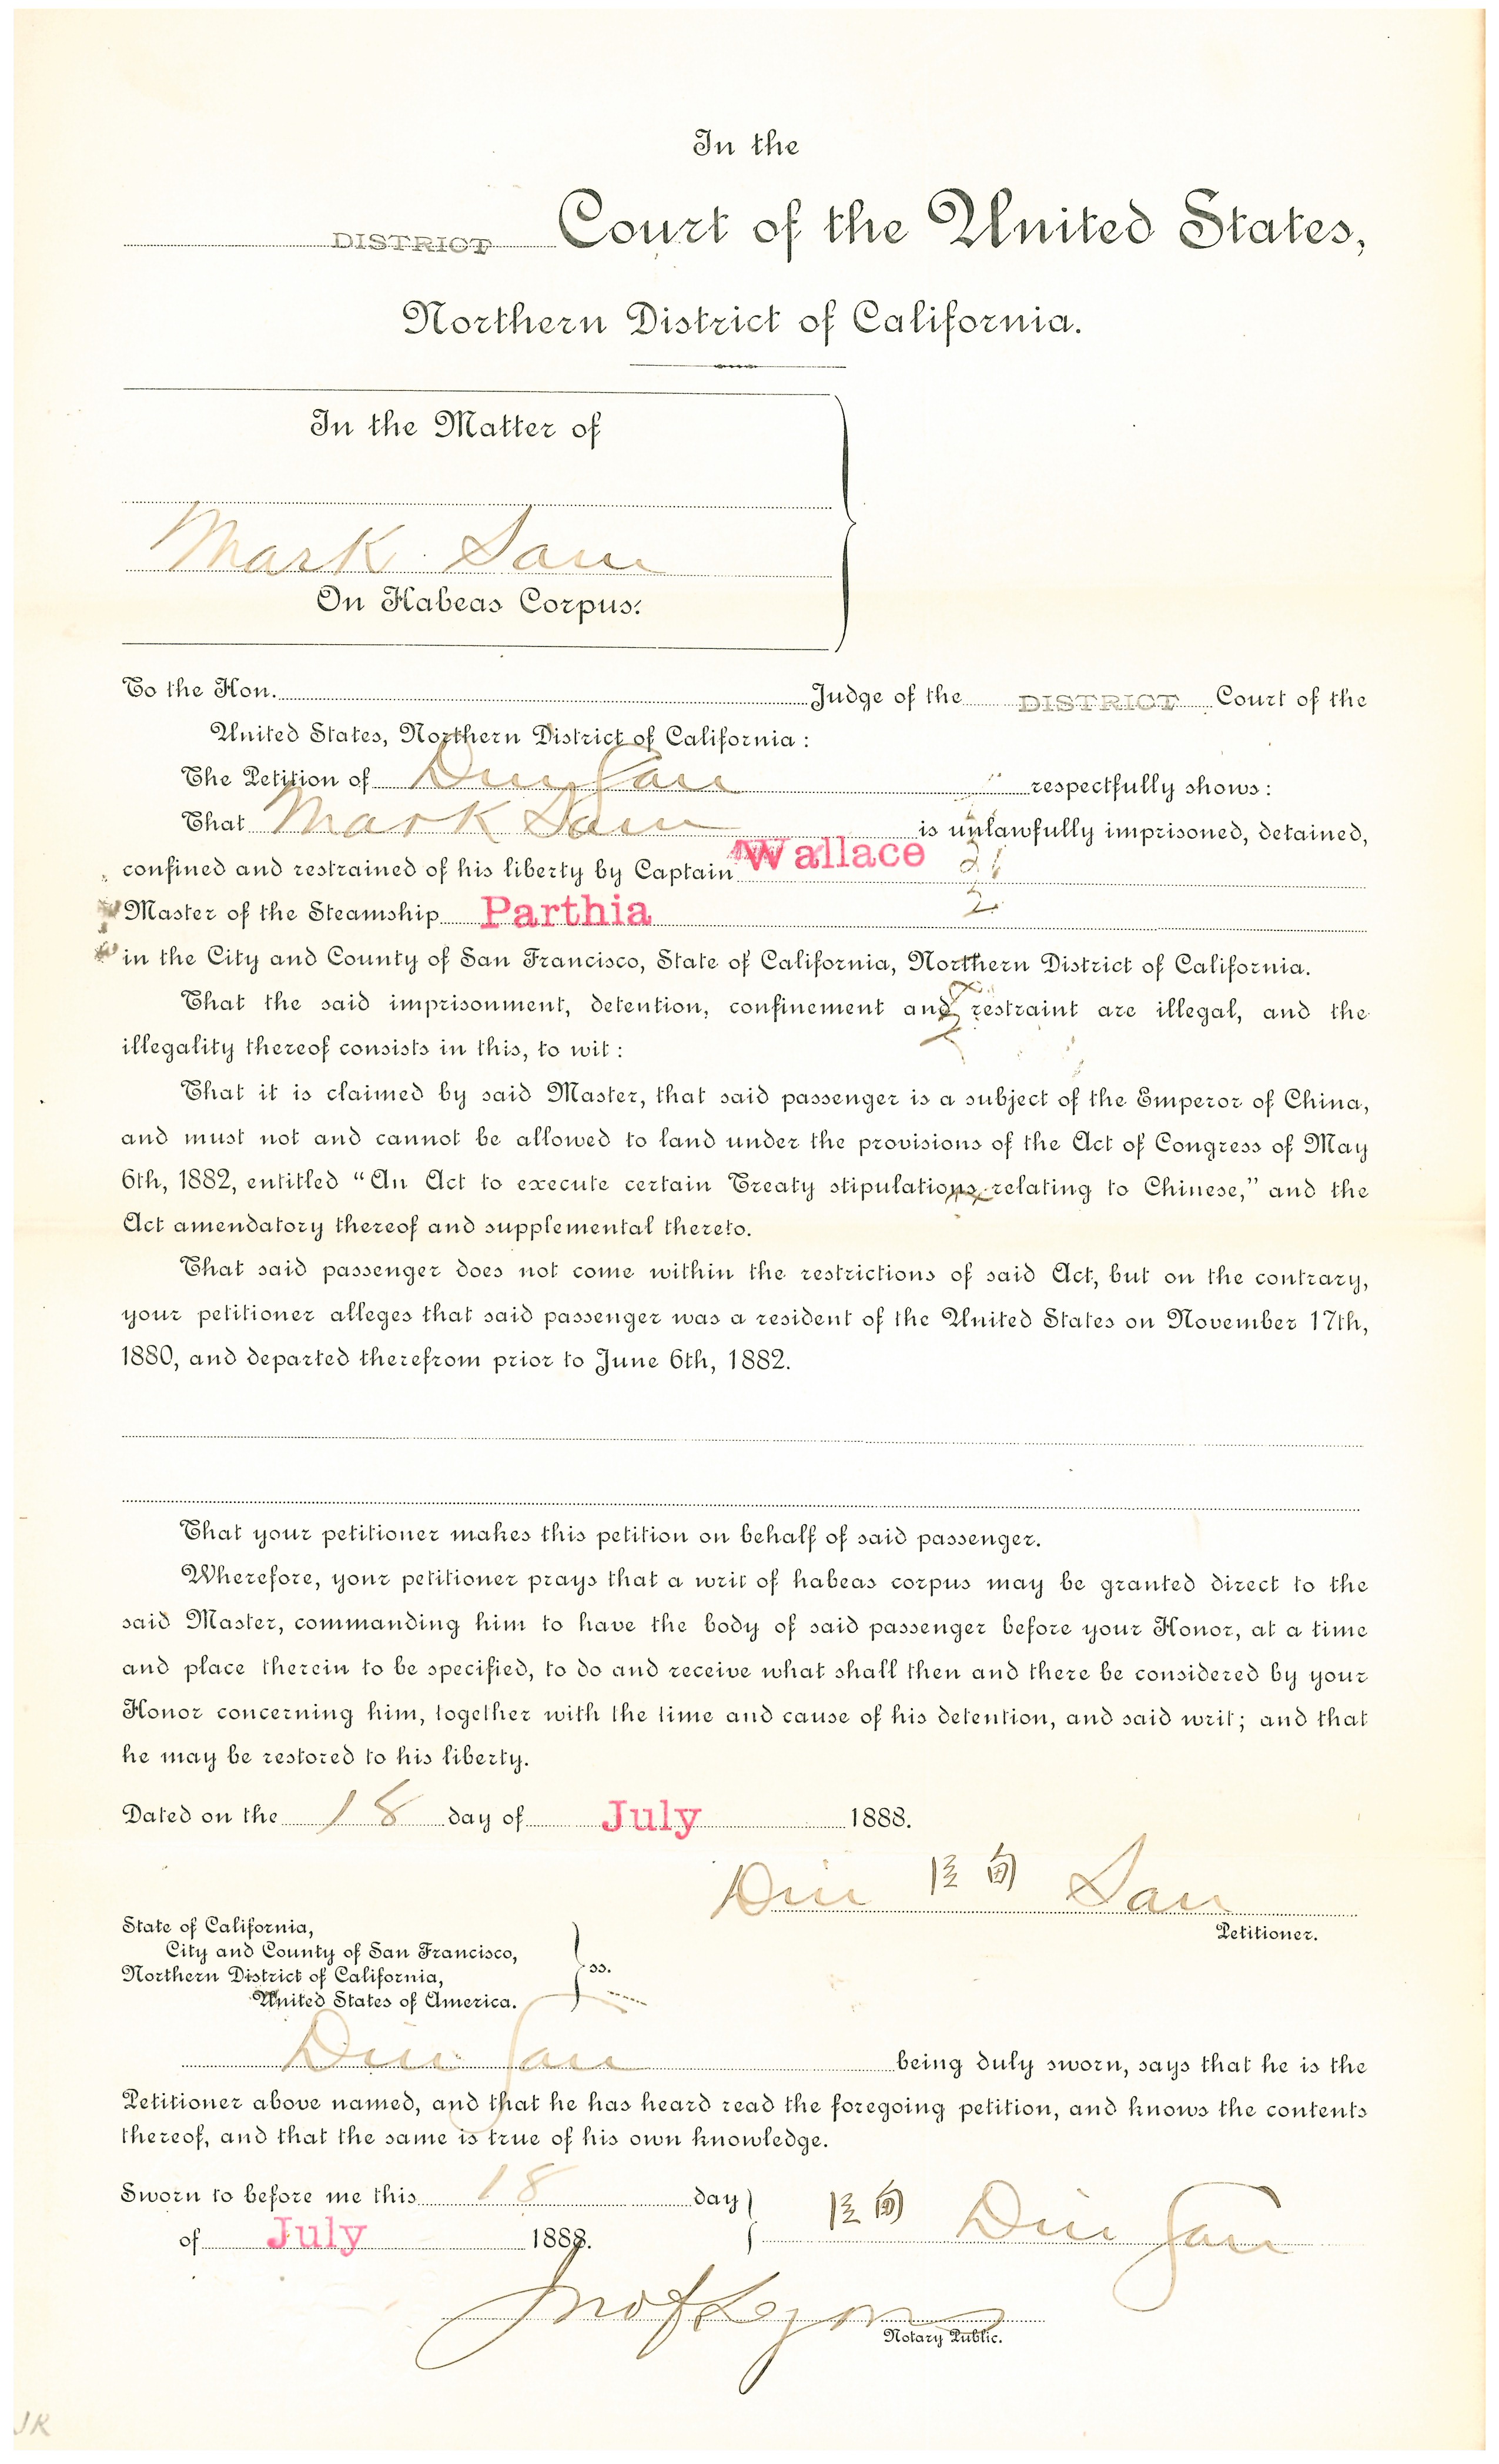 In the
DISTRICT Court of the United States,
Northern District of California.
In the Matter of
Mark Sam
On Habeas Corpus.
To the Hon. Judge of the DISTRICT Court of the
United States, Northern District of California:
The Petition of Din Gan respectfully shows:
That Mark Sam is unlawfully imprisoned, detained,
confined and restrained of his liberty by Captain Wallace
Master of the Steamship Parthia
in the City and County of San Francisco, State of California, Northern District of California.
That the said imprisonment, detention, confinement and restraint are illegal, and the
illegality thereof consists in this, to wit:
That it is claimed by said Master, that said passenger is a subject of the Emperor of China,
and must not and cannot be allowed to land under the provisions of the Act of Congress of May
6th, 1882, entitled “An Act to execute certain Treaty stipulations relating to Chinese,” and the
Act amendatory thereof and supplemental thereto.
That said passenger does not come within the restrictions of said Act, but on the contrary,
your petitioner alleges that said passenger was a resident of the United States on November 17th,
1880, and departed therefrom prior to June 6th, 1882.
That your petitioner makes this petition on behalf of said passenger.
Wherefore, your petitioner prays that a writ of habeas corpus may be granted direct to the
said Master, commanding him to have the body of said passenger before your Honor, at a time
and place therein to be specified, to do and receive what shall then and there be considered by your
Honor concerning him, together with the time and cause of his detention, and said writ; and that
he may be restored to his liberty.
Dated on the 18 day of July 1888.
Din San
Petitioner.
State of California,
City and County of San Francisco,
Northern District of California,
United States of America.
ss.
Din Gan being duly sworn, says that he is the
Petitioner above named, and that he has heard read the foregoing petition, and knows the contents
thereof, and that the same is true of his own knowledge.
Sworn to before me this 18 day
of July 1888.
Din Gan
Jno f Lyons
Notary Public.
JK